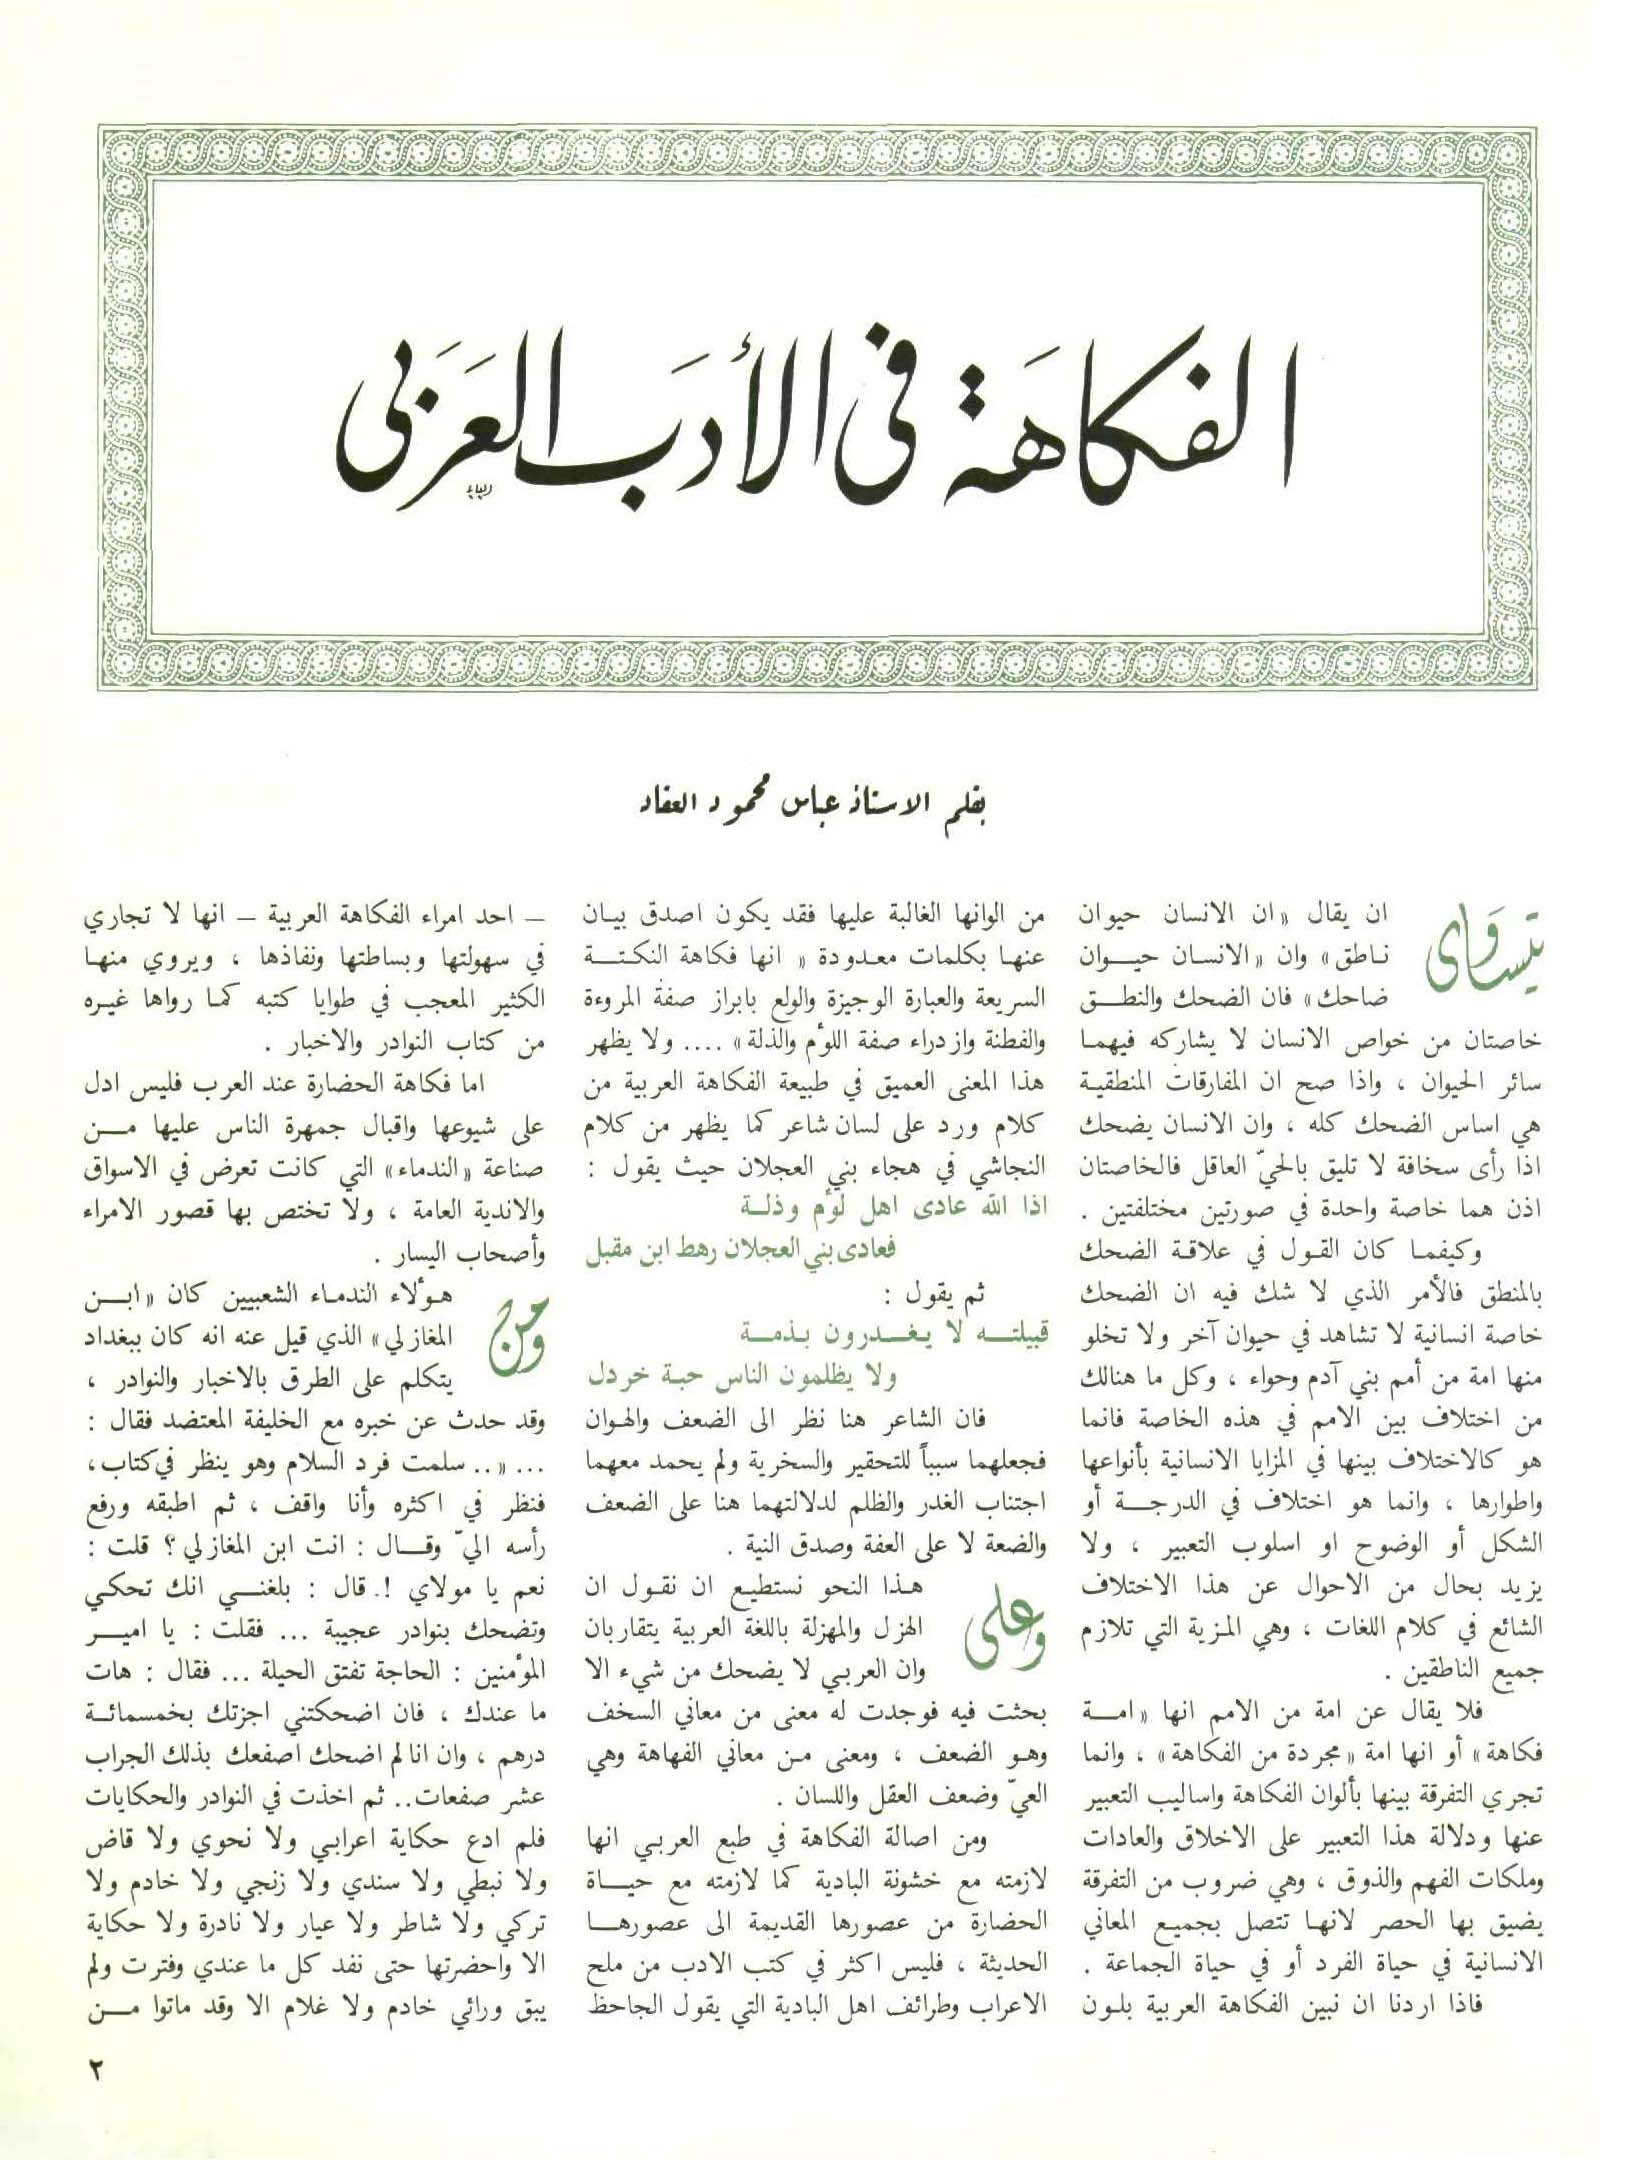 الفكاهة في الأدب العربي
بقلم الاستاذ عباس محمود العقاد
يتساوى ان يقال «ان الانسان حيوان
ناطق» وان «الانسان حيوان
ضاحك» فان الضحك والنطق
خاصتان من خواص الانسان لا يشاركه فيهما
سائر الحيوان ، واذا صح ان المفارقات المنطقية
هي اساس الضحك كله ، وان الانسان يضحك
اذا رأى سخافة لا تليق بالحيّ العاقل فالخاصتان
اذن هما خاصة واحدة في صورتين مختلفتين .
وكيفما كان القول في علاقة الضحك
بالمنطق فالأمر الذي لا شك فيه ان الضحك
خاصة انسانية لا تشاهد في حيوان آخر ولا تخلو
منها امة من أمم بني آدم وحواء ، وكل ما هنالك
من اختلاف بين الامم في هذه الخاصة فانما
هو كالاختلاف بينها في المزايا الانسانية بأنواعها
واطوارها ، وانما هو اختلاف في الدرجة أو
الشكل أو الوضوح او اسلوب التعبير ، ولا
يزيد بحال من الاحوال عن هذا الاختلاف
الشائع في كلام اللغات ، وهي المزية التي تلازم
جميع الناطقين .
فلا يقال عن امة من الامم انها «امة
فكاهة» أو انها امة «مجردة من الفكاهة» ، وانما
تجري التفرقة بينها بألوان الفكاهة واساليب التعبير
عنها ودلالة هذا التعبير على الاخلاق والعادات
وملكات الفهم والذوق ، وهي ضروب من التفرقة
يضيق بها الحصر لانها تتصل بجميع المعاني
الانسانية في حياة الفرد أو في حياة الجماعة .
فاذا اردنا ان نبين الفكاهة العربية بلون
من الوانها الغالبة عليها فقد يكون اصدق بيان
عنها بكلمات معدودة « انها فكاهة النكتة
السريعة والعبارة الوجيزة والولع بابراز صفة المروءة
والفطنة وازدراء صفة اللؤم والذلة» .... ولا يظهر
هذا المعنى العميق في طبيعة الفكاهة العربية من
كلام ورد على لسان شاعر كما يظهر من كلام
النجاشي في هجاء بني العجلان حيث يقول :
اذا الله عادى اهل لؤم وذلة
فعادى بني العجلان رهط ابن مقبل
ثم يقول :
قبيلته لا يغدرون بذمة
ولا يظلمون الناس حبة خردل
فان الشاعر هنا نظر الى الضعف والهوان
فجعلهما سبباً للتحقير والسخرية ولم يحمد معهما
اجتناب الغدر والظلم لدلالتهما هنا على الضعف
والضعة لا على العفة وصدق النية .
وعلى هذا النحو نستطيع ان نقول ان
الهزل والمهزلة باللغة العربية يتقاربان
وان العربي لا يضحك من شيء الا
بحثت فيه فوجدت له معنى من معاني السخف
وهو الضعف ، ومعنى من معاني الفهاهة وهي
العيّ وضعف العقل واللسان .
ومن اصالة الفكاهة في طبع العربي انها
لازمته مع خشونة البادية كما لازمته مع حياة
الحضارة من عصورها القديمة الى عصورها
الحديثة ، فليس اكثر في كتب الادب من ملح
الاعراب وطرائف اهل البادية التي يقول الجاحظ
– احد امراء الفكاهة العربية – انها لا تجاري
في سهولتها وبساطتها ونفاذها ، ويروي منها
الكثير المعجب في طوايا كتبه كما رواها غيره
من كتاب النوادر والاخبار .
اما فكاهة الحضارة عند العرب فليس ادل
على شيوعها واقبال جمهرة الناس عليها من
صناعة «الندماء» التي كانت تعرض في الاسواق
والاندية العامة ، ولا تختص بها قصور الامراء
وأصحاب اليسار .
ومن هؤلاء الندماء الشعبيين كان «ابن
المغازلي» الذي قيل عنه انه كان ببغداد
يتكلم على الطرق بالاخبار والنوادر ،
وقد حدث عن خبره مع الخليفة المعتضد فقال :
... «.. سلمت فرد السلام وهو ينظر في كتاب،
فنظر في اكثره وأنا واقف ، ثم اطبقه ورفع
رأسه اليّ وقال : انت ابن المغازلي ؟ قلت :
نعم يا مولاي !. قال : بلغني انك تحكي
وتضحك بنوادر عجيبة ... فقلت : يا امير
المؤمنين : الحاجة تفتق الحيلة ... فقال : هات
ما عندك ، فان اضحكتني اجزتك بخمسمائة
درهم ، وان انا لم اضحك اصفعك بذلك الجراب
عشر صفعات.. ثم اخذت في النوادر والحكايات
فلم ادع حكاية اعرابي ولا نحوي ولا قاض
ولا نبطي ولا سندي ولا زنجي ولا خادم ولا
تركي ولا شاطر ولا عيار ولا نادرة ولا حكاية
الا واحضرتها حتى نفد كل ما عندي وفترت ولم
يبق ورائي خادم ولا غلام الا وقد ماتوا من
٢